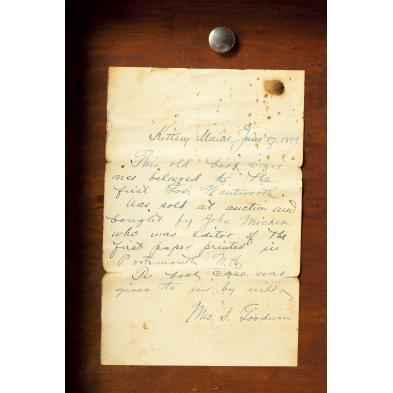 Kittery Maine, June 17, 1899
This old book case
once belonged to the
first Gov. Wentworth.
Was sold at auction and
bought by John
who was editor of the
first paper printed in
Portsmouth N.H.
The book case was
given to me by will
S. Goodwin